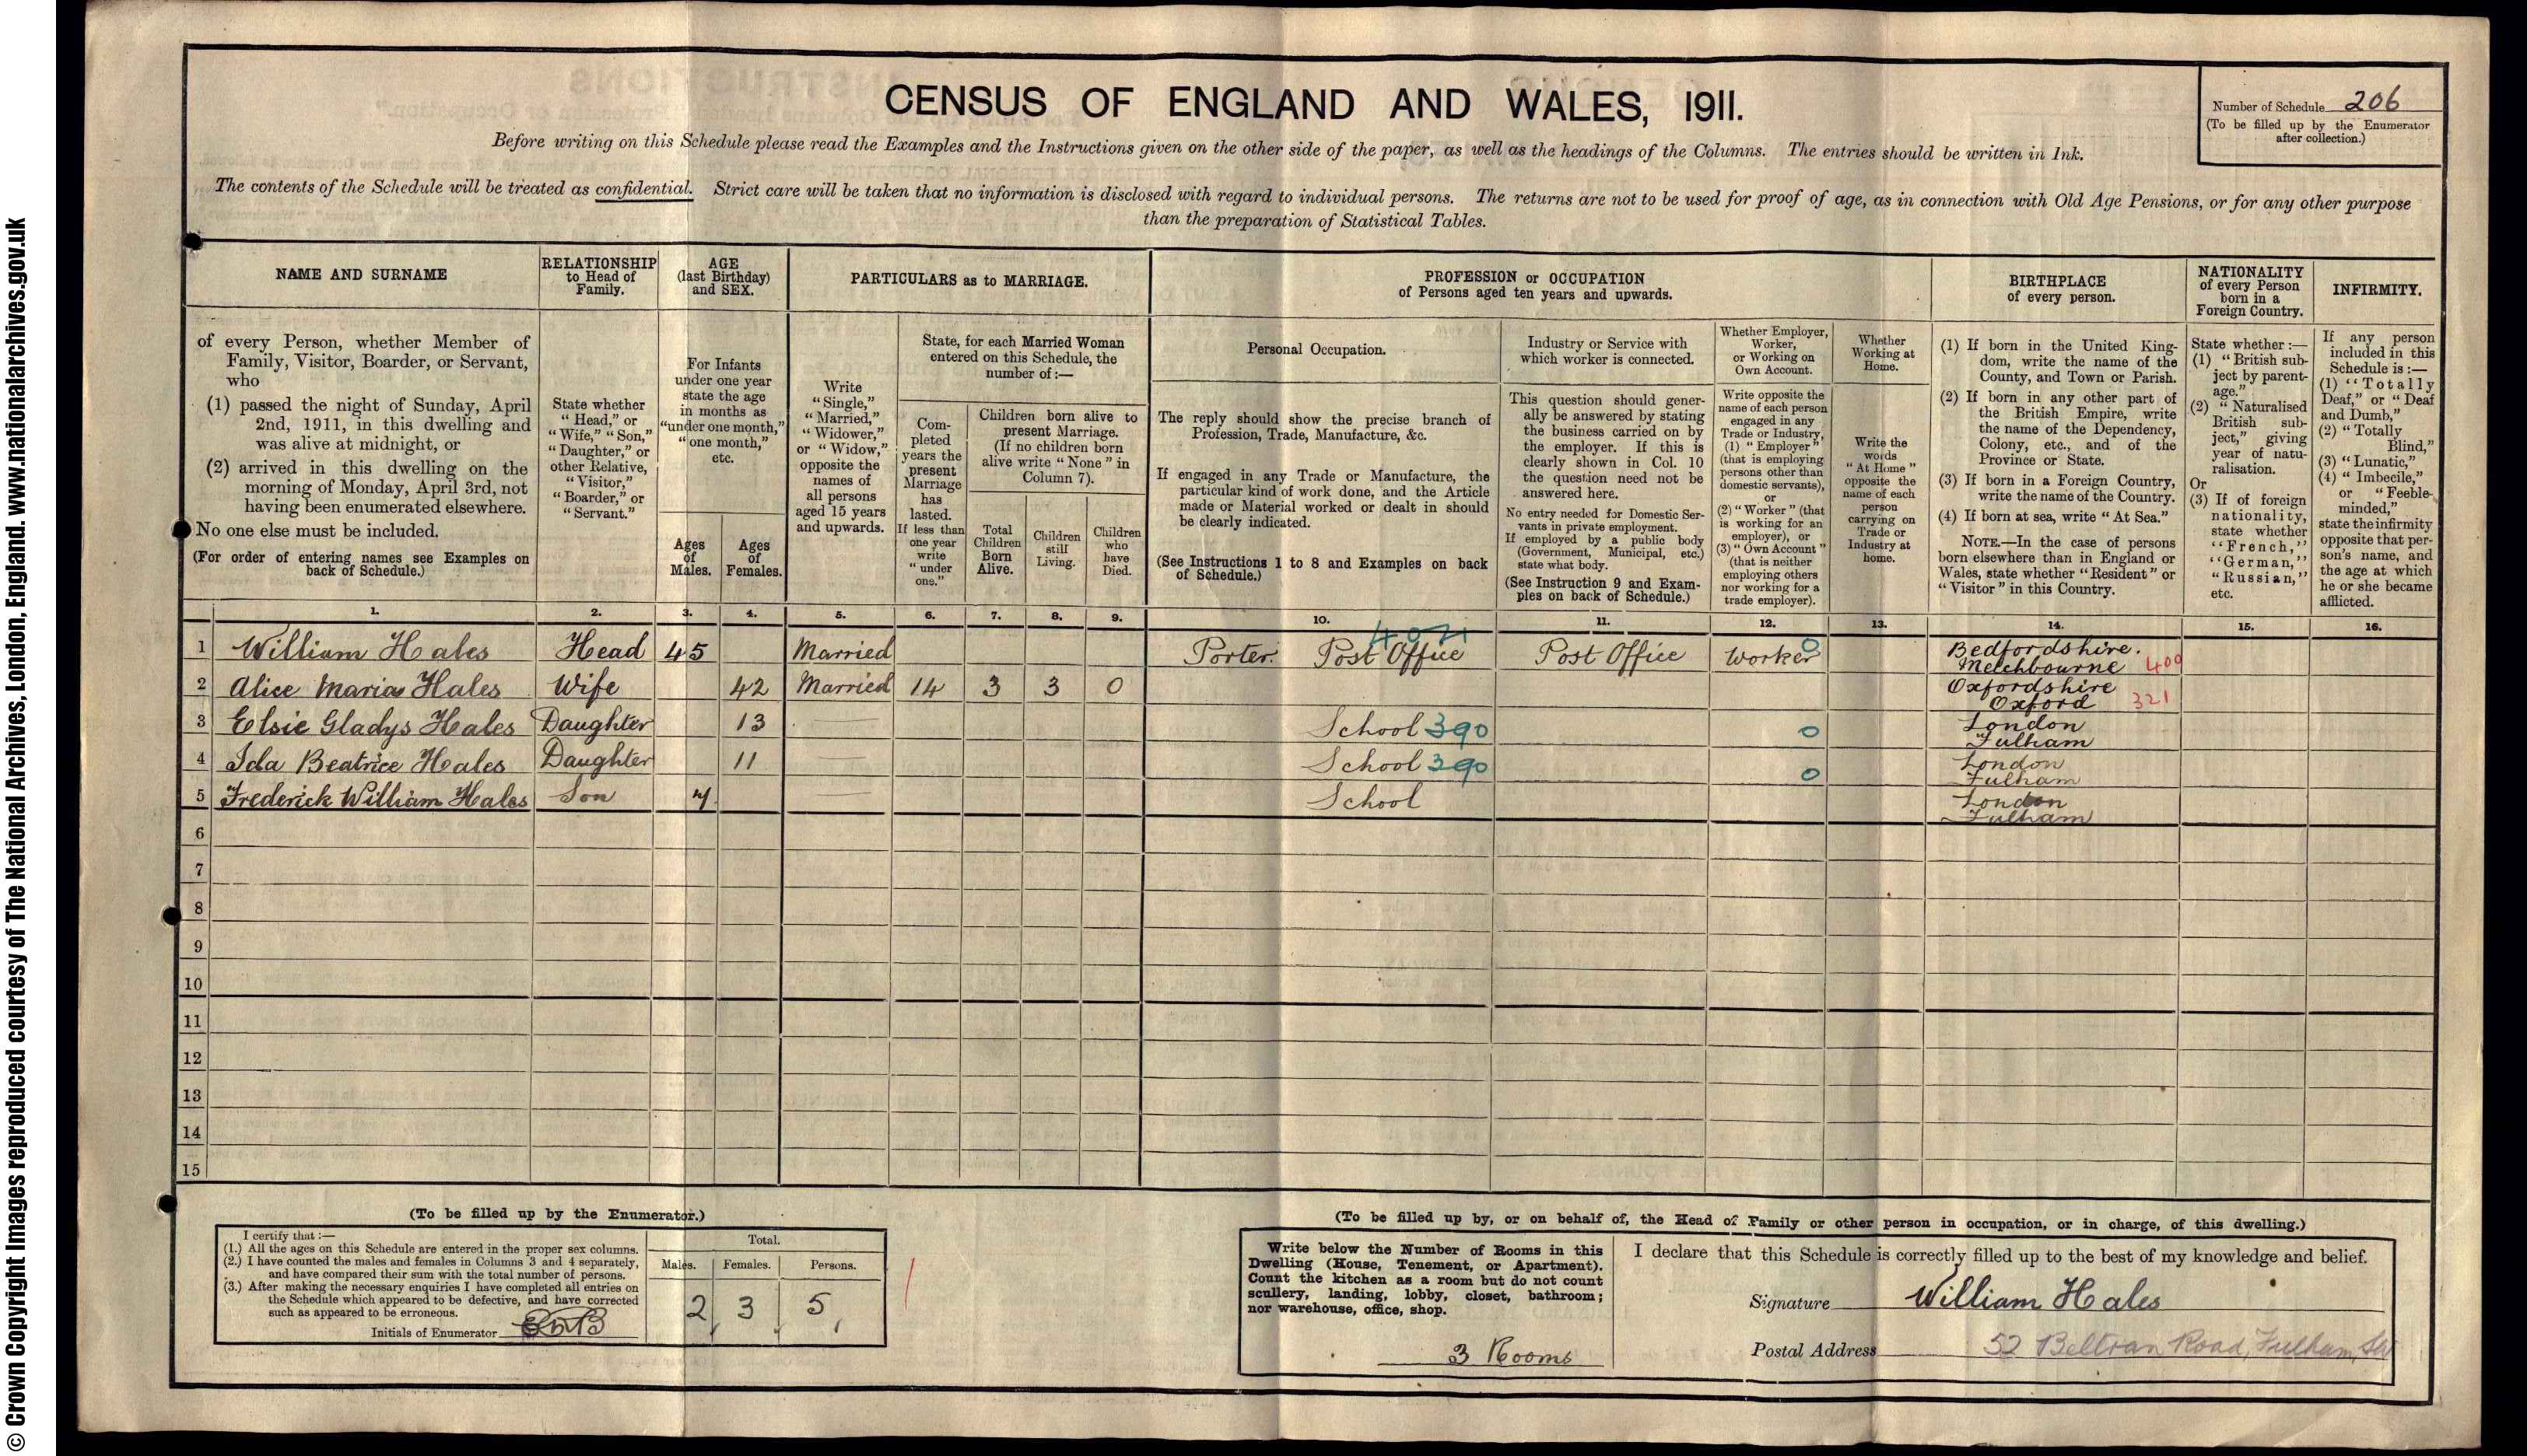 © Crown Copyright Images reproduced courtesy of The National Archives, London, England. www.nationalarchives.gov.uk
CENSUS OF ENGLAND AND WALES, 1911.
Number of Schedule 206
(To be filled up by the Enumerator
after collection.)
Before writing on this Schedule please read the Examples and the Instructions given on the other side of the paper, as well as the headings of the Columns. The entries should be written in Ink.
The contents of the Schedule will be treated as confidential. Strict care will be taken that no information is disclosed with regard to individual persons. The returns are not to be used for proof of age, as in connection with Old Age Pensions, or for any other purpose
than the preparation of Statistical Tables.
NAME AND SURNAME
of every Person, whether Member of
Family, Visitor, Boarder, or Servant,
who
(1) passed the night of Sunday, April
2nd, 1911, in this dwelling and
was alive at midnight, or
(2) arrived in this dwelling on the
morning of Monday, April 3rd, not
having been enumerated elsewhere.
No one else must be included.
(For order of entering names see Examples on
back of Schedule.)
RELATIONSHIP
to Head of
Family.
State whether
"Head," or
"Wife," "Son,"
"Daughter," or
other Relative,
"Visitor,"
"Boarder," or
"Servant."
AGE
(last Birthday)
and SEX.
For Infants
under one year
state the age
in months as
"under one month,"
"one month,"
etc.
Ages
of
Males.
Ages
of
Females.
PARTICULARS as to MARRIAGE.
Write
"Single,"
"Married,"
"Widower,"
or "Widow,"
opposite the
names of
all persons
aged 15 years
and upwards.
State, for each Married Woman
entered on this Schedule, the
number of:—
Com-
pleted
years the
present
Marriage
has
lasted.
If less than
one year
write
"under
one."
Children born alive to
present Marriage.
(If no children born
alive write "None" in
Column 7).
Total
Children
Born
Alive.
Children
still
Living.
Children
who
have
Died.
PROFESSION or OCCUPATION
of Persons aged ten years and upwards.
Personal Occupation.
The reply should show the precise branch of
Profession, Trade, Manufacture, &c.
If engaged in any Trade or Manufacture, the
particular kind of work done, and the Article
made or Material worked or dealt in should
be clearly indicated.
(See Instructions 1 to 8 and Examples on back
of Schedule.)
Industry or Service with
which worker is connected.
This question should gener-
ally be answered by stating
the business carried on by
the employer. If this is
clearly shown in Col. 10
the question need not be
answered here.
No entry needed for Domestic Ser-
vants in private employment.
If employed by a public body
(Government, Municipal, etc.)
state what body.
(See Instruction 9 and Exam-
ples on back of Schedule.)
Whether Employer,
Worker,
or Working on
Own Account.
Write opposite the
name of each person
engaged in any
Trade or Industry,
(1) "Employer"
(that is employing
persons other than
domestic servants),
or
(2) "Worker" (that
is working for an
employer), or
(3) "Own Account"
(that is neither
employing others
nor working for a
trade employer).
Whether
Working at
Home.
Write the
words
"At Home"
opposite the
name of each
person
carrying on
Trade or
Industry at
home.
BIRTHPLACE
of every person.
(1) If born in the United King-
dom, write the name of the
County, and Town or Parish.
(2) If born in any other part of
the British Empire, write
the name of the Dependency,
Colony, etc., and of the
Province or State.
(3) If born in a Foreign Country,
write the name of the Country.
(4) If born at sea, write "At Sea."
NOTE.—In the case of persons
born elsewhere than in England or
Wales, state whether "Resident" or
"Visitor" in this Country.
NATIONALITY
of every Person
born in a
Foreign Country.
State whether:—
(1) "British sub-
ject by parent-
age."
(2) "Naturalised
British sub-
ject," giving
year of natu-
ralisation.
Or
(3) If of foreign
nationality,
state whether
"French,"
"German,"
"Russian,"
etc.
INFIRMITY.
If any person
included in this
Schedule is:—
(1) "Totally
Deaf," or "Deaf
and Dumb,"
(2) "Totally
Blind,"
(3) "Lunatic,"
(4) "Imbecile,"
or "Feeble-
minded,"
state the infirmity
opposite that per-
son's name, and
the age at which
he or she became
afflicted.
1. 2. 3. 4. 5. 6. 7. 8. 9. 10. 11. 12. 13. 14. 15. 16.
1 William Hales Head 45 Married Porter. Post Office Post Office Worker 0 Bedfordshire.
Melchbourne 400
2 Alice Maria Hales Wife 42 Married 14 3 3 0 Oxfordshire
Oxford 321
3 Elsie Gladys Hales Daughter 13 School 390 0 London
Fulham
4 Ida Beatrice Hales Daughter 11 School 390 0 London
Fulham
5 Frederick William Hales Son 7 School London
Fulham
6
7
8
9
10
11
12
13
14
15
(To be filled up by the Enumerator.)
I certify that:—
(1.) All the ages on this Schedule are entered in the proper sex columns.
(2.) I have counted the males and females in Columns 3 and 4 separately,
and have compared their sum with the total number of persons.
(3.) After making the necessary enquiries I have completed all entries on
the Schedule which appeared to be defective, and have corrected
such as appeared to be erroneous.
Initials of Enumerator
Total.
Males. Females. Persons.
2 3 5
(To be filled up by, or on behalf of, the Head of Family or other person in occupation, or in charge, of this dwelling.)
Write below the Number of Rooms in this
Dwelling (House, Tenement, or Apartment).
Count the kitchen as a room but do not count
scullery, landing, lobby, closet, bathroom;
nor warehouse, office, shop.
3 Rooms
I declare that this Schedule is correctly filled up to the best of my knowledge and belief.
Signature William Hales
Postal Address 52 Beltran Road, Fulham, SW